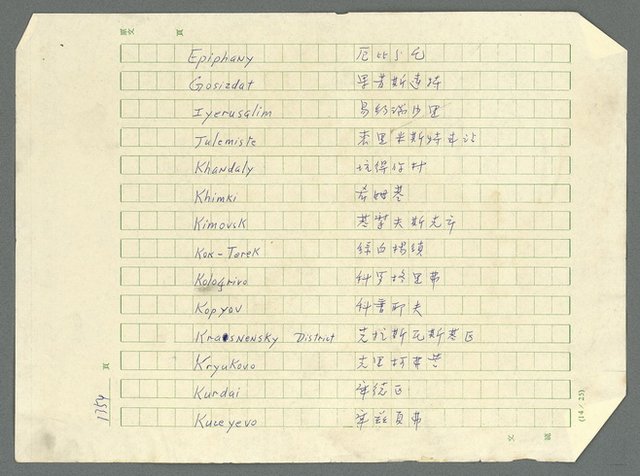 頁
Epiphany 厄比分尼
Gosizdat 果普斯達特
Iyerusalim 易約瑞沙里
Julemiste 裘里米斯特車站
Khandaly 坑得你村
Khimki 希姆基
Kimovsk 基摩夫斯克市
Kok-Terek 綠白楊鎮
Kologrivo 科羅格里弗
Kopyov 科書耶夫
Krasnensky District 克拉斯瓦斯基區
Kryukovo 克里柯弗
Kurdai 庫德區
Kuzeyevo 庫茲夏弗
頁
1354
(14／25)